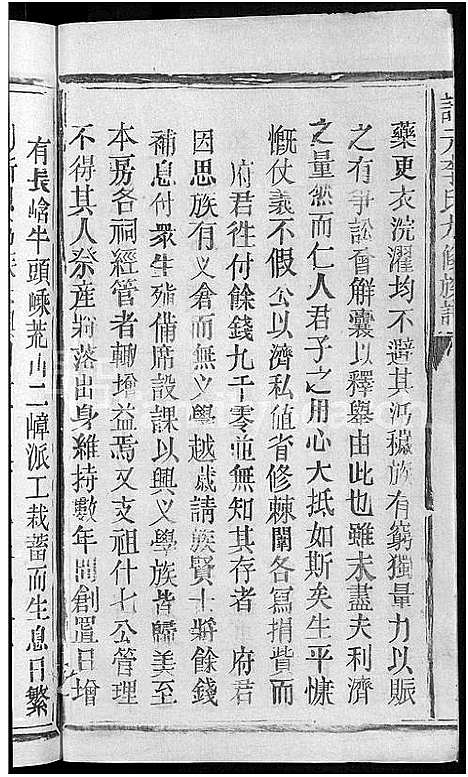 藥更衣浣濯均不避其汚穢族有窮獨量力以賑
之有爭訟會解囊以釋擧由此也雖未盡夫利濟
之量然而仁人君子之用心大抵如斯矣生平慷
慨仗義不假公以濟私値省修棘闈各寫捐貲而
府君徃付餘錢九千零並無知其存者 府君
因思族有义倉而無义學越歲請族賢士將餘錢
補息付衆生殖備席設課以興义學族皆歸美至
本房各祠經管者輙增益焉又支祖什七公管理
不得其人祭產將落出身維持數年間創置日增
有長嶺牛頭嵊荒山二嶂派工栽蓄而生息日繁